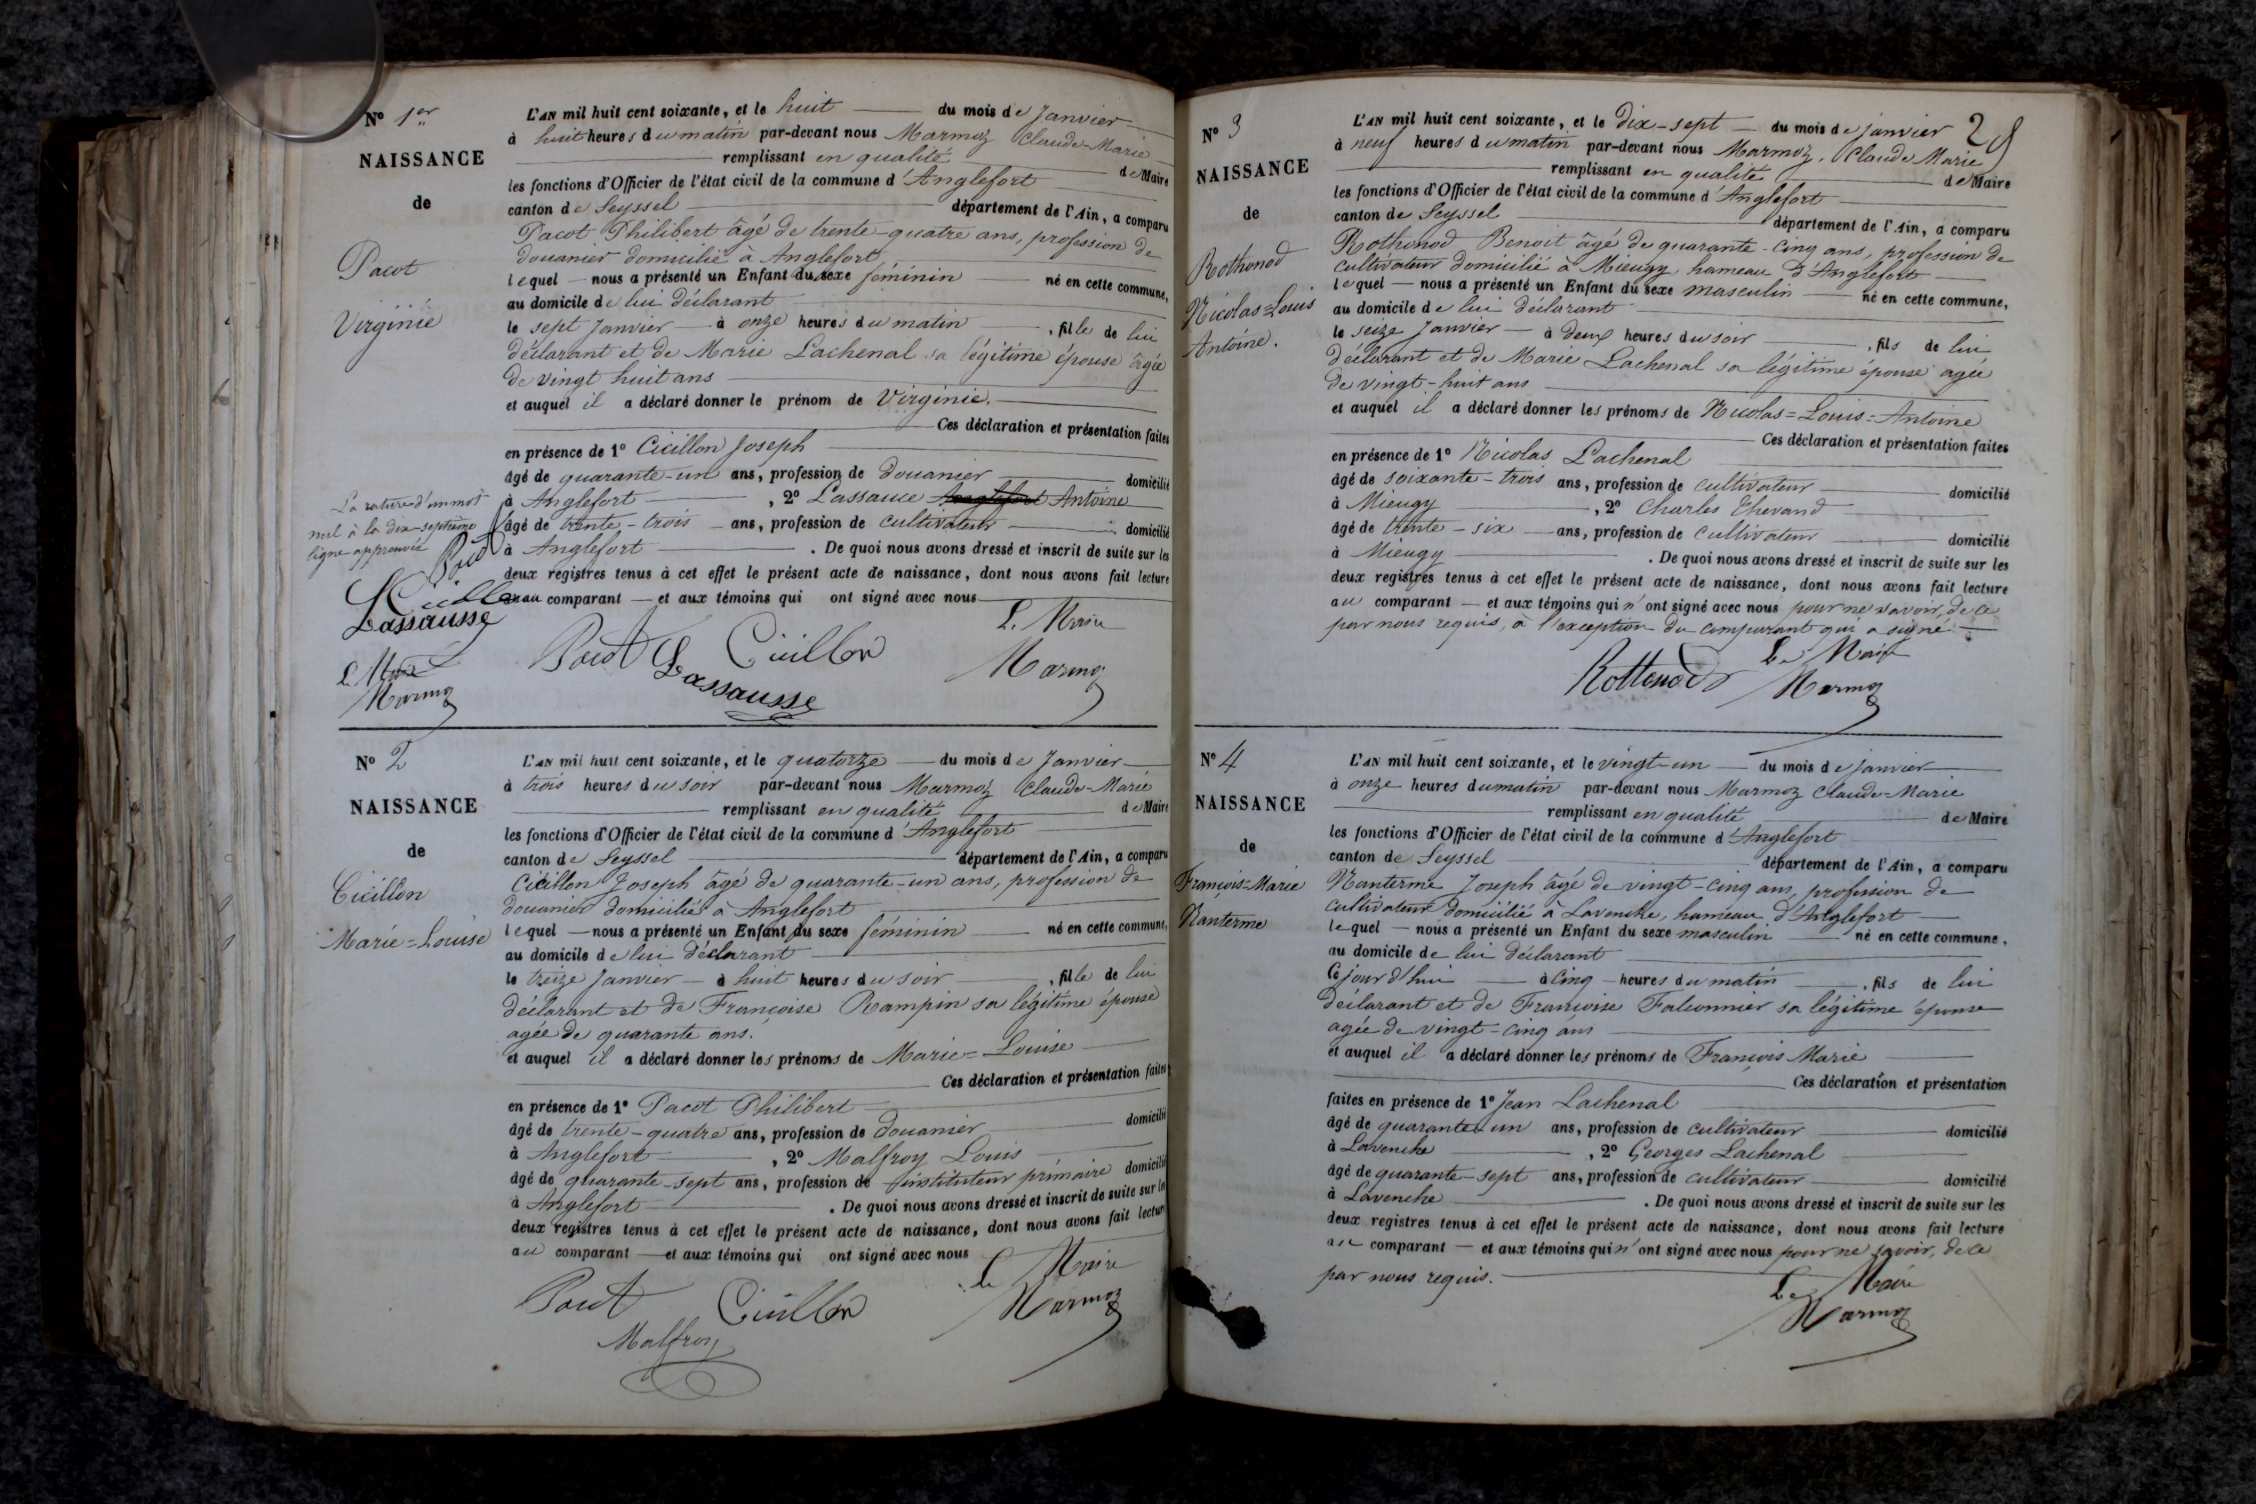 N° 1er
NAISSANCE
de
Pacot
Virginie
L'AN mil huit cent soixante, et le huit du mois de Janvier
à huit heures du matin par-devant nous Marmoz Claude-Marie
remplissant en qualité de Maire
les fonctions d'Officier de l'état civil de la commune d'Anglefort
canton de Seyssel département de l'Ain, a comparu
Pacot Philibert âgé de trente-quatre ans, profession de
douanier domicilié à Anglefort
lequel nous a présenté un Enfant du sexe féminin né en cette commune,
au domicile de lui déclarant
le sept Janvier à onze heures du matin, fille de lui
déclarant et de Marie Lachenal sa légitime épouse âgée
de vingt huit ans
et auquel il a déclaré donner le prénom de Virginie.
Ces déclaration et présentation faites
en présence de 1° Cicillon Joseph
âgé de quarante-un ans, profession de douanier domicilié
à Anglefort, 2° Lassauce Anglefort Antoine
âgé de trente-trois ans, profession de cultivateur domicilié
à Anglefort. De quoi nous avons dressé et inscrit de suite sur les
deux registres tenus à cet effet le présent acte de naissance, dont nous avons fait lecture
au comparant et aux témoins qui ont signé avec nous
La rature d'un mot
nul à la dix-septième
ligne approuvée
Pacot
Cicillon
Lassausse
Le Maire
Marmoz
Pacot Lassausse Cicillon Le Maire
Marmoz
N° 2
NAISSANCE
de
Cicillon
Marie=Louise
L'AN mil huit cent soixante, et le quatorze du mois de Janvier
à trois heures du soir par-devant nous Marmoz Claude-Marie
remplissant en qualité de Maire
les fonctions d'Officier de l'état civil de la commune d'Anglefort
canton de Seyssel département de l'Ain, a comparu
Cicillon Joseph âgé de quarante-un ans, profession de
douanier domicilié à Anglefort
lequel nous a présenté un Enfant du sexe féminin né en cette commune,
au domicile de lui déclarant
le treize Janvier à huit heures du soir, fille de lui
déclarant et de Françoise Rampin sa légitime épouse
agée de quarante ans.
et auquel il a déclaré donner les prénoms de Marie=Louise
Ces déclaration et présentation faites
en présence de 1° Pacot Philibert
âgé de trente-quatre ans, profession de douanier domicilié
à Anglefort, 2° Malfroy Louis
âgé de quarante-sept ans, profession de instituteur primaire domicilié
à Anglefort. De quoi nous avons dressé et inscrit de suite sur les
deux registres tenus à cet effet le présent acte de naissance, dont nous avons fait lecture
au comparant et aux témoins qui ont signé avec nous
Pacot Cicillon Le Maire
Malfroy Marmoz
N° 3
NAISSANCE
de
Rothonod
Nicolas=Louis
Antoine.
L'AN mil huit cent soixante, et le dix-sept du mois de janvier
à neuf heures du matin par-devant nous Marmoz, Claude Marie
remplissant en qualité de Maire
les fonctions d'Officier de l'état civil de la commune d'Anglefort
canton de Seyssel département de l'Ain, a comparu
Rothonod Benoit âgé de quarante-cinq ans, profession de
cultivateur domicilié à Mieugy hameau d'Anglefort
lequel nous a présenté un Enfant du sexe masculin né en cette commune,
au domicile de lui déclarant
le seize Janvier à deux heures du soir, fils de lui
déclarant et de Marie Lachenal sa légitime épouse agée
de vingt-huit ans
et auquel il a déclaré donner les prénoms de Nicolas=Louis=Antoine
Ces déclaration et présentation faites
en présence de 1° Nicolas Lachenal
âgé de soixante-trois ans, profession de cultivateur domicilié
à Mieugy, 2° Charles Thevand
âgé de trente-six ans, profession de cultivateur domicilié
à Mieugy. De quoi nous avons dressé et inscrit de suite sur les
deux registres tenus à cet effet le présent acte de naissance, dont nous avons fait lecture
au comparant et aux témoins qui n'ont signé avec nous pour ne savoir, de ce
par nous requis, à l'exception du comparant qui a signé
Rottonod Le Maire
Marmoz
N° 4
NAISSANCE
de
François=Marie
Nanterme
L'AN mil huit cent soixante, et le vingt-un du mois de janvier
à onze heures du matin par-devant nous Marmoz Claude-Marie
remplissant en qualité de Maire
les fonctions d'Officier de l'état civil de la commune d'Anglefort
canton de Seyssel département de l'Ain, a comparu
Nanterme Joseph âgé de vingt-cinq ans, profession de
cultivateur domicilié à Lavenche, hameau d'Anglefort
lequel nous a présenté un Enfant du sexe masculin né en cette commune,
au domicile de lui déclarant
Ce jour d'hui à cinq heures du matin, fils de lui
déclarant et de Françoise Falconnier sa légitime épouse
agée de vingt-cinq ans
et auquel il a déclaré donner les prénoms de François Marie
Ces déclaration et présentation
faites en présence de 1° Jean Lachenal
âgé de quarante-un ans, profession de cultivateur domicilié
à Lavenche, 2° Georges Lachenal
âgé de quarante-sept ans, profession de cultivateur domicilié
à Lavenche. De quoi nous avons dressé et inscrit de suite sur les
deux registres tenus à cet effet le présent acte de naissance, dont nous avons fait lecture
au comparant et aux témoins qui n'ont signé avec nous pour ne savoir, de ce
par nous requis.
Le Maire
Marmoz